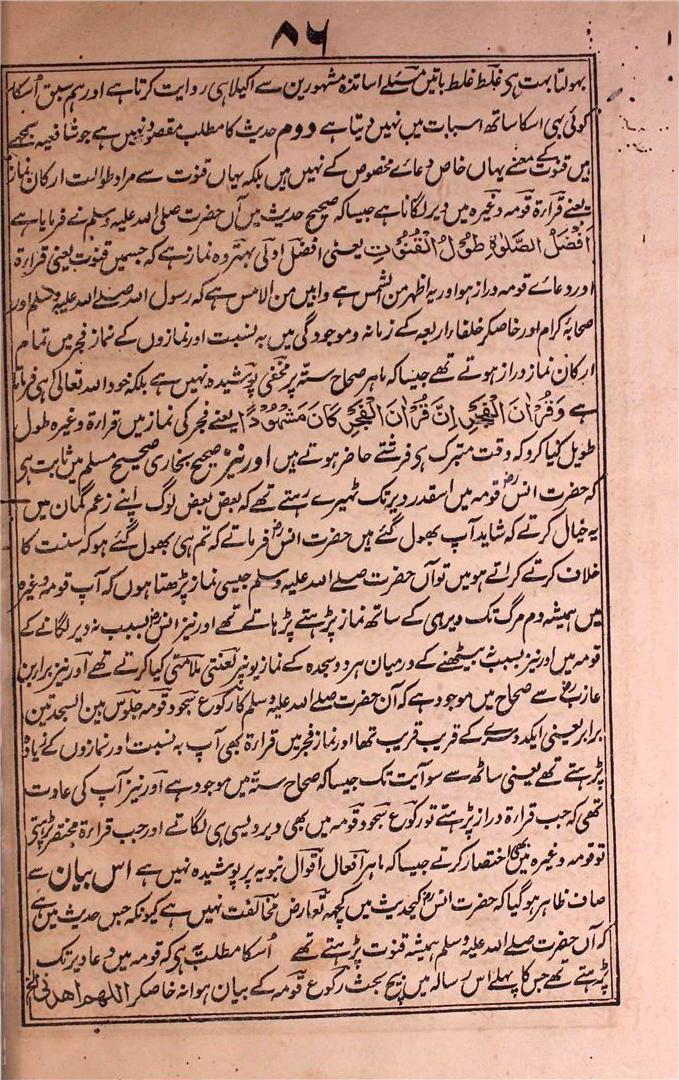 ۸۶
بہولتا بہت ہی غلط غلط باتیں مسئلے اساتذہ مشہورین سے اکیلا ہی روایت کرتا ہے اور ہم سبق اُسکا
کوئی بہی اسکا ساتھ اسبات میں نہیں دیتا ہے دوم حدیث کا مطلب مقصود نہیں ہے جو شافعیہ سمجہے
ہیں قنوت کے معنے یہاں خاص دعاے مخصوص کے نہیں ہیں بلکہ یہاں قنوت سے مراد طوالت ارکان نماز
یعنے قراءة قومہ وغیرہ میں دیر لگانا ہے جیسا کہ صحیح حدیث میں آں حضرت صلی اللہ علیہ وسلم نے فرمایا ہے
اَفْضَلُ الصَّلٰوةِ طُوْلُ الْقُنُوْتِ یعنی افضل اولیٰ بہتر وہ نماز ہے کہ جسمیں قنوت یعنی قراءة
اور دعاے قومہ دراز ہو اور یہ اظہر من الشمس ہے وابین من الامس ہے کہ رسول اللہ صلے اللہ علیہ وسلم اور
صحابۂ کرام اور خاصکر خلفاء اربعہ کے زمانہ و موجودگی میں بہ نسبت اور نمازوں کے نماز فجر میں تمام
ارکان نماز دراز ہوتے تھے جیسا کہ ماہر صحاح ستہ پر مخفی پوشیدہ نہیں ہے بلکہ خود اللہ تعالیٰ ہی فرماتا
ہے وَقُرْاٰنَ الْفَجْرِ اِنَّ قُرْاٰنَ الْفَجْرِ كَانَ مَشْهُوْدًا یعنے فجر کی نماز میں قراءة وغیرہ طول
طویل کیا کرو کہ وقت متبرک ہی فرشتے حاضر ہوتے ہیں اور نیز صحیح بخاری صحیح مسلم میں ثابت ہی
کہ حضرت انس رض قومہ میں اسقدر دیر تک ٹہیرے رہتے تھے کہ بعض بعض لوگ اپنے زعم گمان میں
یہ خیال کرتے کہ شاید آپ بھول گئے ہیں حضرت انس رض فرماتے کہ تم ہی بھول گئے ہو کہ سنت کا
خلاف کرتے کراتے ہو میں تو آں حضرت صلے اللہ علیہ وسلم جیسی نماز پڑھتا ہوں کہ آپ قومہ وغیرہ
میں ہمیشہ دم مرگ تک دیر ہی کے ساتھ نماز پڑہتے پڑہاتے تھے اور نیز انس رض بسبب نہ دیر لگانے کے
قومہ میں اور نیز بسبب نہ بیٹھنے کے درمیان ہر دو سجدہ کے نمازیونپر لعنتی ملامتی کیا کرتے تھے اور نیز براء بن
عازب رض سے صحاح میں موجود ہے کہ آن حضرت صلے اللہ علیہ وسلم کا رکوع سجود قومہ جلوس بین السجدتین
برابر یعنی ایکدوسرے کے قریب قریب تھا اور نماز فجر میں قراءة بھی آپ بہ نسبت اور نمازوں کے زیادہ
پڑہتے تھے یعنی ساٹھ سے سو آیت تک جیسا کہ صحاح ستہ میں موجود ہے اور نیز آپ کی عادت
تھی کہ جب قراءة دراز پڑہتے تو رکوع سجود قومہ میں بھی دیر ویسی ہی لگاتے اور جب قراءة مختصر پڑہتے
تو قومہ وغیرہ میں بھی اختصار کرتے جیسا کہ ماہر افعال اقوال نبویہ پر پوشیدہ نہیں ہے اس بیان سے
صاف ظاہر ہو گیا کہ حضرت انس رض کیحدیث میں کچہہ تعارض مخالفت نہیں ہے کیونکہ جس حدیث میں ہے
کہ آں حضرت صلے اللہ علیہ وسلم ہمیشہ قنوت پڑہتے تھے اُسکا مطلب یہ ہی کہ قومہ میں دعا دیر تک
پڑہتے تھے جس کا پہلے اس رسالہ میں بیچ بحث رکوع قومہ کے بیان ہوا نہ خاصکر اللهم اهدنی الخ